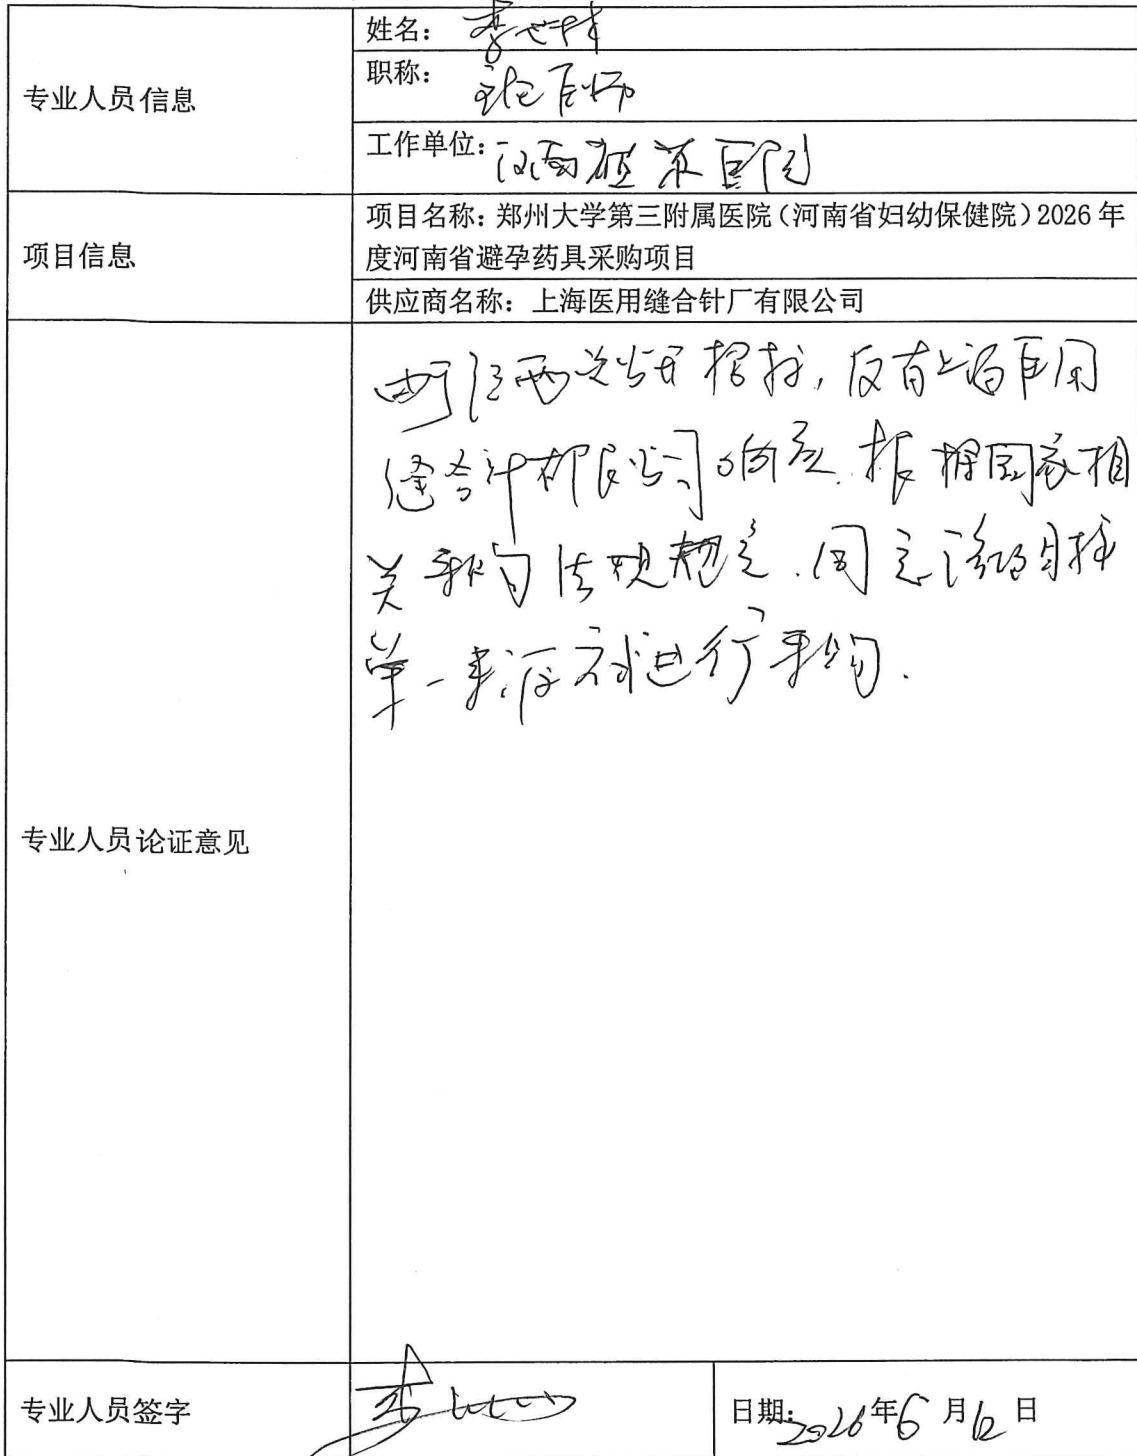 专业人员信息
姓名：李
职称：主任医师
工作单位：河南 医院
项目信息
项目名称：郑州大学第三附属医院（河南省妇幼保健院）2026年
度河南省避孕药具采购项目
供应商名称：上海医用缝合针厂有限公司
专业人员论证意见
由于经两次公开招标，仅有上海医用
缝合针 有限公司响应，根据国家相
关采购法规规定，同意该项目按
单一来源方式进行采购.
专业人员签字
李
日期：2026年6月12日